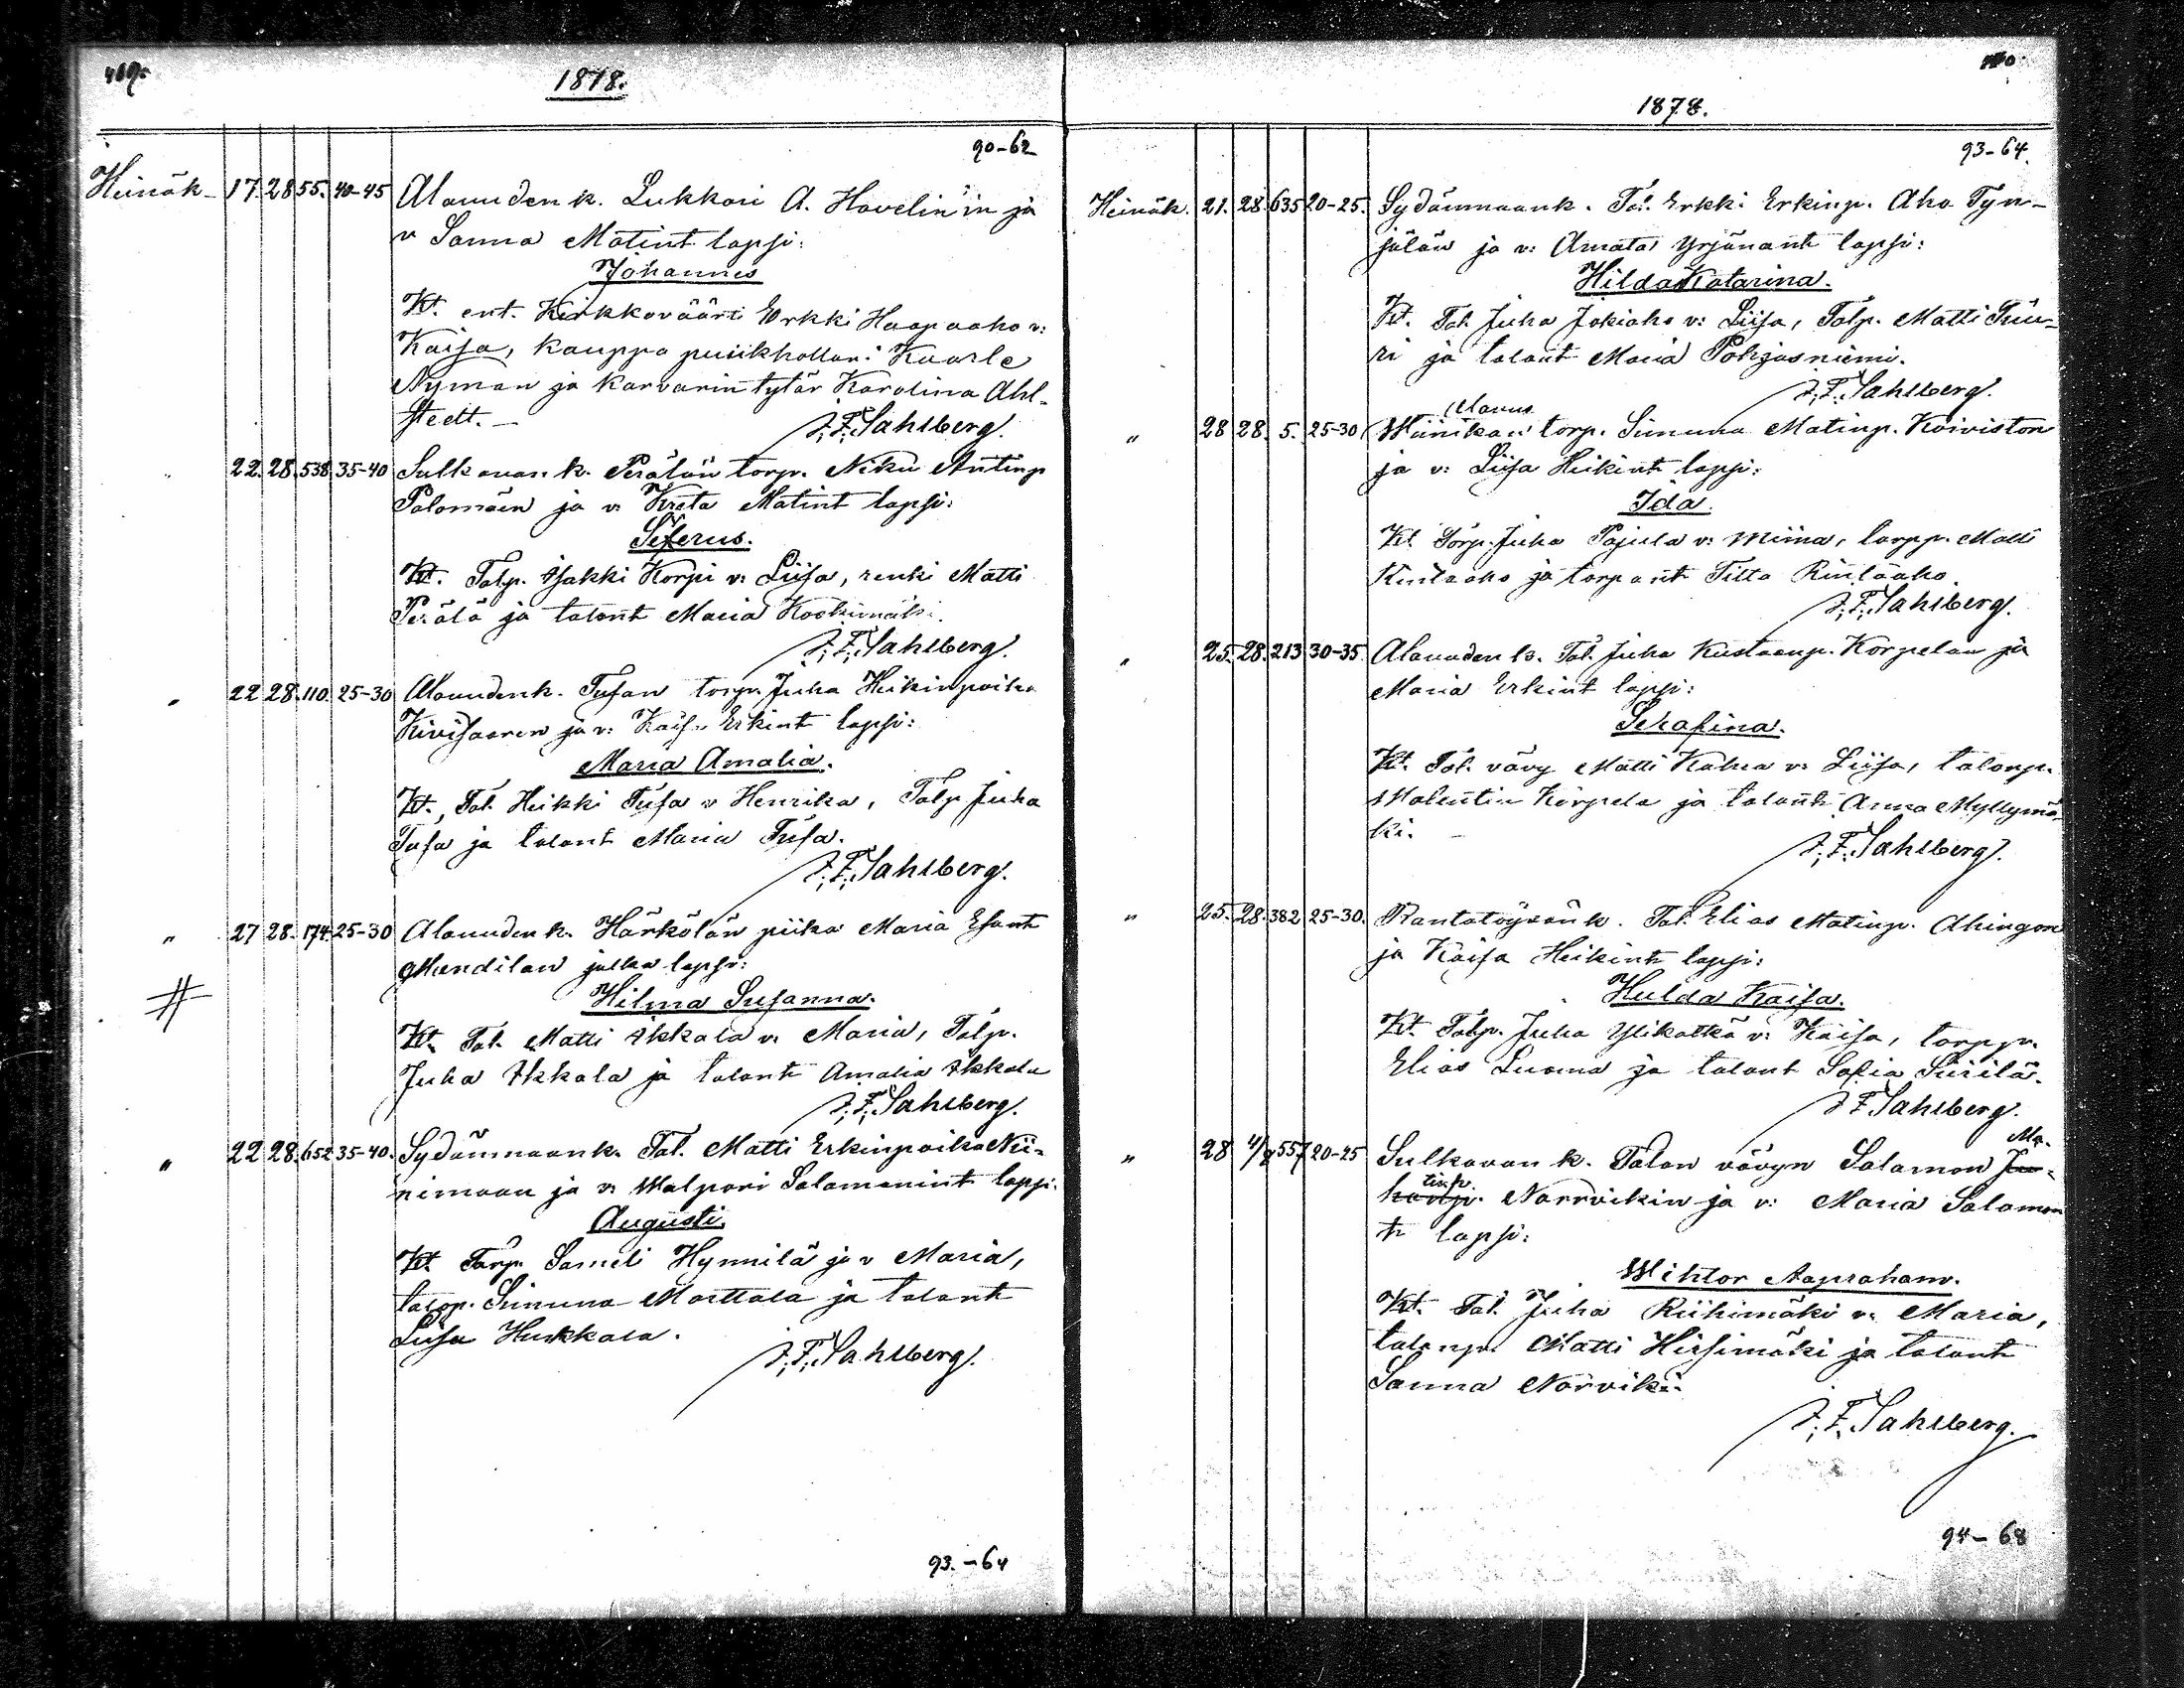 469.
1878.
90-62
Heinäk. 17. 28. 55. 40-45 Alavuden k. Lukkari A. Hovelin'in ja
v Sanna Matint lapsi:
Johannes
Kt. ent. Kirkkoväärti Erkki Haapaaho v:
Kaisa, kauppa puukhollari Kaarle
Nyman ja karvarin tytär Karolina Ahl-
stedt. — J. F. Sahlberg.
" 22. 28. 538 35-40 Sulkavan k. Perälän torp. Niku Antinp
Palomäen ja v: Kreta Matint lapsi:
Seferus.
Kt. Talp. Jaakki Korpi v: Liisa, renki Matti
Perälä ja talont Maria Koskimäki.
J. F. Sahlberg.
" 22 28. 110. 25-30 Alavuden k. Tusan torp. Juha Heikinpoika
Kivisaaren ja v: Kaisa Erkint lapsi:
Maria Amalia.
Kt. Tal. Heikki Tusa v Henrika, Talp Juha
Tusa ja talont Maria Tusa.
J. F. Sahlberg.
" 27 28. 174 25-30 Alavuden k. Härkölän piika Maria Esant
Mandilan jalka lapsi:
#
Hilma Susanna.
Kt. Tal. Matti Akkala v: Maria, Talp.
Juha Akkala ja talont Amalia Akkala
J. F. Sahlberg.
" 22 28. 652 35-40. Sydänmaan k. Tal. Matti Erkinpoika Nii-
nimaan ja v: Walpori Salomonint lapsi.
Augusti.
Kt. Torp. Sameli Hynnilä ja v Maria,
talop. Simuna Marttala ja talont
Liisa Hukkala.
J. F. Sahlberg.
93.-64
470
1878.
93-64.
Heinäk. 21. 28. 635 20-25. Sydänmaan k. Tal. Erkki Erkinp. Aho Tyn-
jälän ja v: Amata Yrjänänt lapsi:
Hilda Katarina.
Kt. Tal. Juha Jokiaho v: Liisa, Talp. Matti Tuu-
ri ja talont Maria Pohjasniemi.
J. F. Sahlberg.
Alavus
" 28 28. 5. 25-30 Wiinikan torp. Simuna Matinp. Koiviston
ja v: Liisa Heikint lapsi:
Ida.
Kt. Torp. Juha Pajula v: Miina, torpp. Matti
Rintaaho ja torpant Tilta Rintaaho.
J. F. Sahlberg.
" 25. 28. 213 30-35 Alavuden k. Tal. Juha Kustaanp. Korpelan ja
Maria Erkint lapsi:
Serafina.
Kt. Tal. vävy Matti Kalma v: Liisa, talonp.
Walentin Korpela ja talont Anna Myllymä-
ki. —
J. F. Sahlberg.
" 25. 28. 382 25-30. Rantatöysän k. Tal. Elias Matinp. Ahingon
ja Kaisa Heikint lapsi:
Hulda Kaisa.
Kt. Talp. Juha Ylikatka v: Kaisa, torpp.
Elias Luoma ja talont Sofia Siirilä.
J F. Sahlberg.
Ma-
" 28 4/8 557 20-25 Sulkavan k. Talon vävyn Salamon Ju-
tinp.
hanp. Norrvikin ja v: Maria Salamon
tr lapsi:
Wihtor Aapraham.
Kt. Tal. Juha Riihimäki v: Maria,
talonp. Matti Hirsimäki ja talont
Sanna Norviki.
J. F. Sahlberg.
94-68